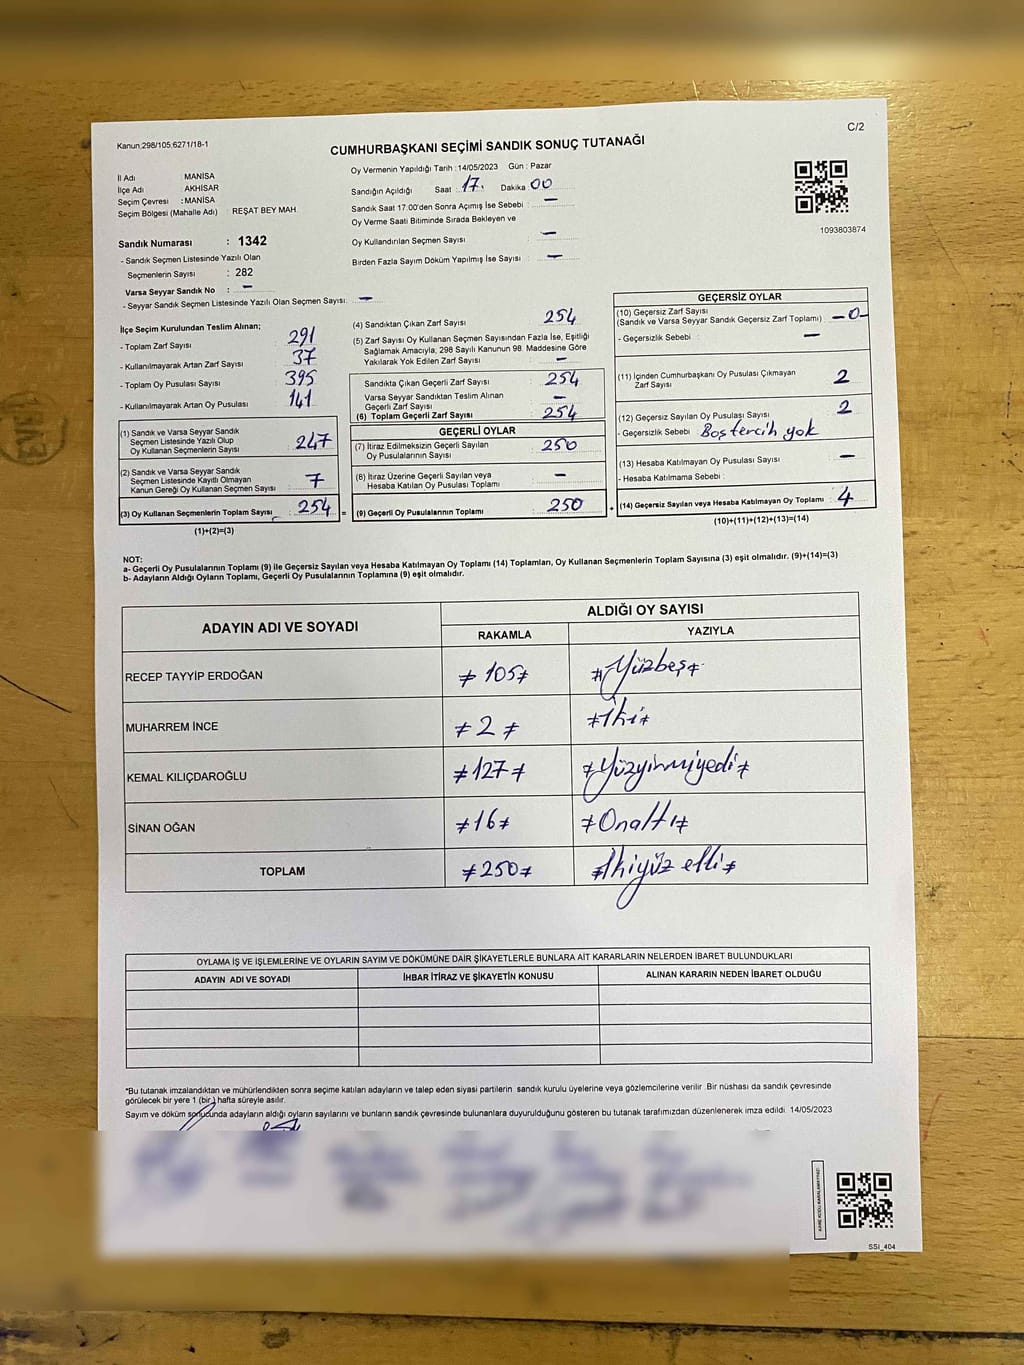 Kanun:298/105;6271/18-1
C/2
CUMHURBAŞKANI SEÇİMİ SANDIK SONUÇ TUTANAĞI
İl Adı MANİSA
İlçe Adı AKHİSAR
Seçim Çevresi : MANİSA
Seçim Bölgesi (Mahalle Adı) REŞAT BEY MAH.
Sandık Numarası : 1342
- Sandık Seçmen Listesinde Yazılı Olan
Seçmenlerin Sayısı : 282
Varsa Seyyar Sandık No : —
- Seyyar Sandık Seçmen Listesinde Yazılı Olan Seçmen Sayısı: —
Oy Vermenin Yapıldığı Tarih : 14/05/2023 Gün : Pazar
Sandığın Açıldığı Saat : 17. Dakika 00
Sandık Saat 17:00'den Sonra Açımış İse Sebebi : —
Oy Verme Saati Bitiminde Sırada Bekleyen ve
Oy Kullandırılan Seçmen Sayısı —
Birden Fazla Sayım Döküm Yapılmış İse Sayısı : —
1093803874
İlçe Seçim Kurulundan Teslim Alınan;
- Toplam Zarf Sayısı : 291
- Kullanılmayarak Artan Zarf Sayısı : 37
- Toplam Oy Pusulası Sayısı : 395
- Kullanılmayarak Artan Oy Pusulası : 141
(1) Sandık ve Varsa Seyyar Sandık
Seçmen Listesinde Yazılı Olup
Oy Kullanan Seçmenlerin Sayısı : 247
(2) Sandık ve Varsa Seyyar Sandık
Seçmen Listesinde Kayıtlı Olmayan
Kanun Gereği Oy Kullanan Seçmen Sayısı : 7
(3) Oy Kullanan Seçmenlerin Toplam Sayısı : 254 =
(1)+(2)=(3)
(4) Sandıktan Çıkan Zarf Sayısı : 254
(5) Zarf Sayısı Oy Kullanan Seçmen Sayısından Fazla İse, Eşitliği
Sağlamak Amacıyla, 298 Sayılı Kanunun 98. Maddesine Göre
Yakılarak Yok Edilen Zarf Sayısı : —
Sandıkta Çıkan Geçerli Zarf Sayısı : 254
Varsa Seyyar Sandıktan Teslim Alınan
Geçerli Zarf Sayısı : —
(6) Toplam Geçerli Zarf Sayısı : 254
GEÇERLİ OYLAR
(7) İtiraz Edilmeksizin Geçerli Sayılan
Oy Pusulalarının Sayısı : 250
(8) İtiraz Üzerine Geçerli Sayılan veya
Hesaba Katılan Oy Pusulası Toplamı : —
(9) Geçerli Oy Pusulalarının Toplamı : 250 +
GEÇERSİZ OYLAR
(10) Geçersiz Zarf Sayısı
(Sandık ve Varsa Seyyar Sandık Geçersiz Zarf Toplamı) : —0—
- Geçersizlik Sebebi : —
(11) İçinden Cumhurbaşkanı Oy Pusulası Çıkmayan
Zarf Sayısı : 2
(12) Geçersiz Sayılan Oy Pusulası Sayısı : 2
- Geçersizlik Sebebi : Boş tercih yok
(13) Hesaba Katılmayan Oy Pusulası Sayısı : —
- Hesaba Katılmama Sebebi :
(14) Geçersiz Sayılan veya Hesaba Katılmayan Oy Toplamı : 4
(10)+(11)+(12)+(13)=(14)
NOT:
a- Geçerli Oy Pusulalarının Toplamı (9) ile Geçersiz Sayılan veya Hesaba Katılmayan Oy Toplamı (14) Toplamları, Oy Kullanan Seçmenlerin Toplam Sayısına (3) eşit olmalıdır. (9)+(14)=(3)
b- Adayların Aldığı Oyların Toplamı, Geçerli Oy Pusulalarının Toplamına (9) eşit olmalıdır.
ADAYIN ADI VE SOYADI ALDIĞI OY SAYISI
RAKAMLA YAZIYLA
RECEP TAYYİP ERDOĞAN ≠ 105 ≠ ≠ Yüzbeş ≠
MUHARREM İNCE ≠ 2 ≠ ≠ İki ≠
KEMAL KILIÇDAROĞLU ≠ 127 ≠ ≠ Yüzyirmiyedi ≠
SİNAN OĞAN ≠ 16 ≠ ≠ Onaltı ≠
TOPLAM ≠ 250 ≠ ≠ İkiyüz elli ≠
OYLAMA İŞ VE İŞLEMLERİNE VE OYLARIN SAYIM VE DÖKÜMÜNE DAİR ŞİKAYETLERLE BUNLARA AİT KARARLARIN NELERDEN İBARET BULUNDUKLARI
ADAYIN ADI VE SOYADI İHBAR İTİRAZ VE ŞİKAYETİN KONUSU ALINAN KARARIN NEDEN İBARET OLDUĞU
*Bu tutanak imzalandıktan ve mühürlendikten sonra seçime katılan adayların ve talep eden siyasi partilerin sandık kurulu üyelerine veya gözlemcilerine verilir. Bir nüshası da sandık çevresinde
görülecek bir yere 1 (bir ) hafta süreyle asılır.
Sayım ve döküm sonucunda adayların aldığı oyların sayılarını ve bunların sandık çevresinde bulunanlara duyurulduğunu gösteren bu tutanak tarafımızdan düzenlenerek imza edildi. 14/05/2023
SSI_404